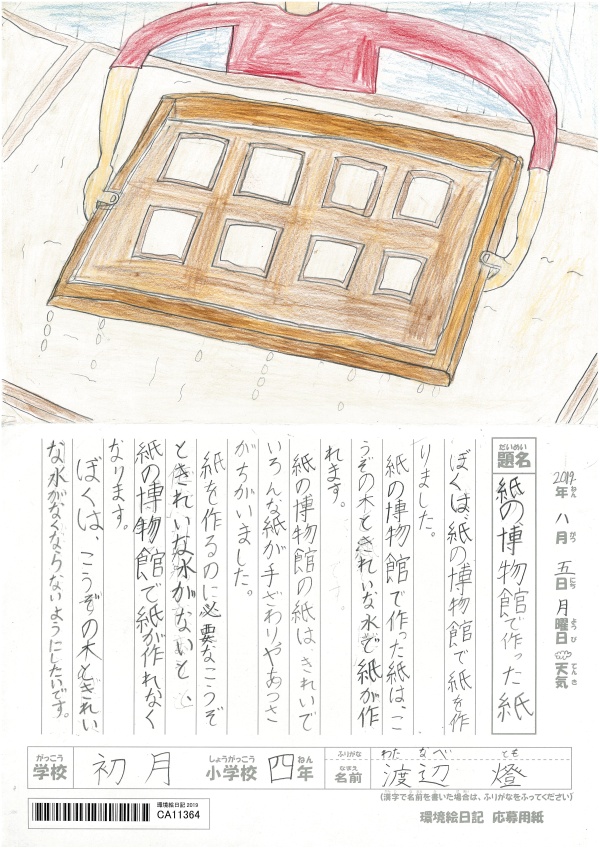 2019年 八月 五日 月曜日 天気
ねん がつ にち ようび てんき
だいめい
題名
紙の博物館で作った紙
ぼくは、紙の博物館で紙を作
りました。
紙の博物館で作った紙は、こ
うぞの木ときれいな水で紙が作
れます。
紙の博物館の紙は、きれいで
いろんな紙が手ざわりやあつさ
がちがいました。
紙を作るのに必要なこうぞ
ときれいな水がないと、
紙の博物館で紙が作れなく
なります。
ぼくは、こうぞの木ときれい
な水がなくならないようにしたいです。
がっこう
学校
初月
しょうがっこう
小学校
四
ねん
年
ふりがな
わたなべ とも
なまえ
名前
渡辺 燈
(漢字で名前を書いた場合は、ふりがなをふってください)
環境絵日記 2019
CA11364
環境絵日記 応募用紙